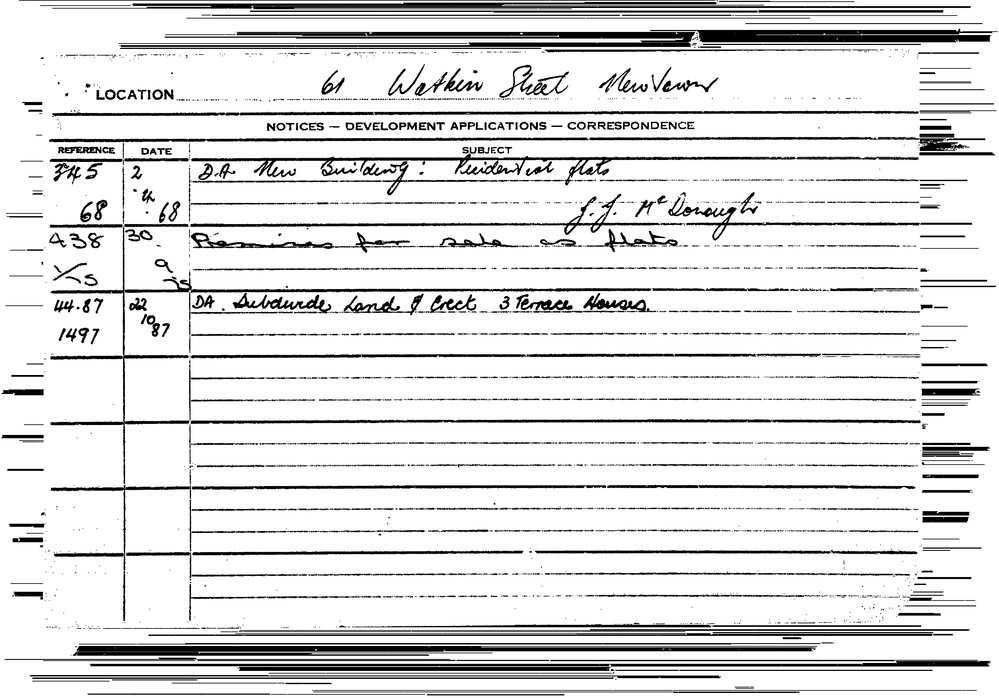 LOCATION 61 Watkin Street Newtown
NOTICES — DEVELOPMENT APPLICATIONS — CORRESPONDENCE
REFERENCE DATE SUBJECT
345 2 D.A. New Building: Residential flats
68 4.68 J. J. McDonough
438 30. Premises for sale as flats
1/75 9 75
44.87 22 DA. Subdivide Land & Erect 3 Terrace Houses.
1497 10 87